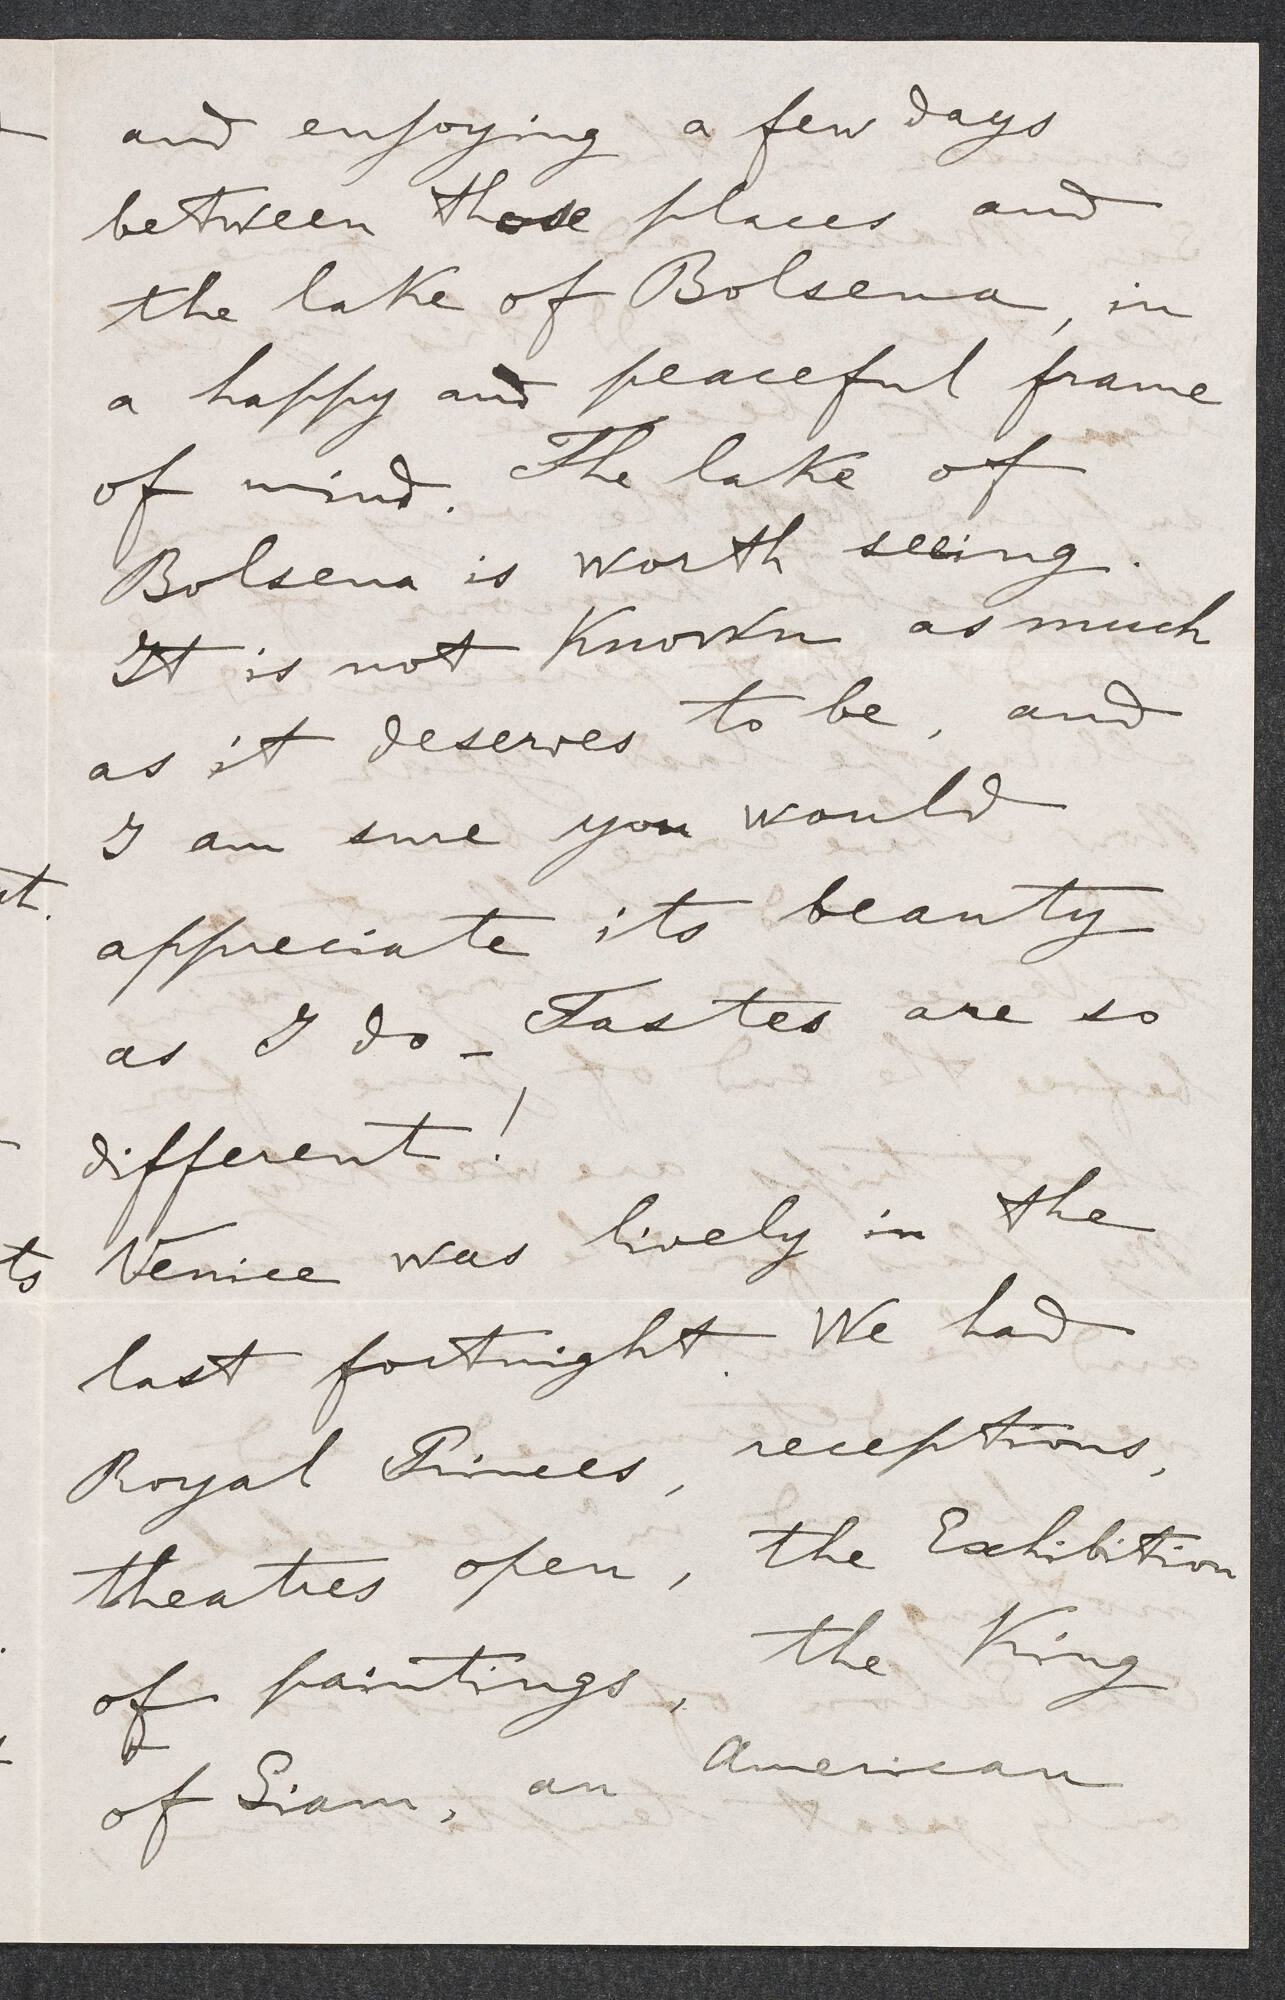 and enjoying a few days
between those places and
the lake of Bolsena, in
a happy and peaceful frame
of mind. The lake of
Bolsena is worth seeing.
It is not known as much
as it deserves to be, and
I am sure you would
appreciate its beauty
as I do - Tastes are so
different!
Venice was lively in the
last fortnight. We had
Royal Princes, receptions,
theatres open, the Exhibition
of paintings, the King
of Siam, an American